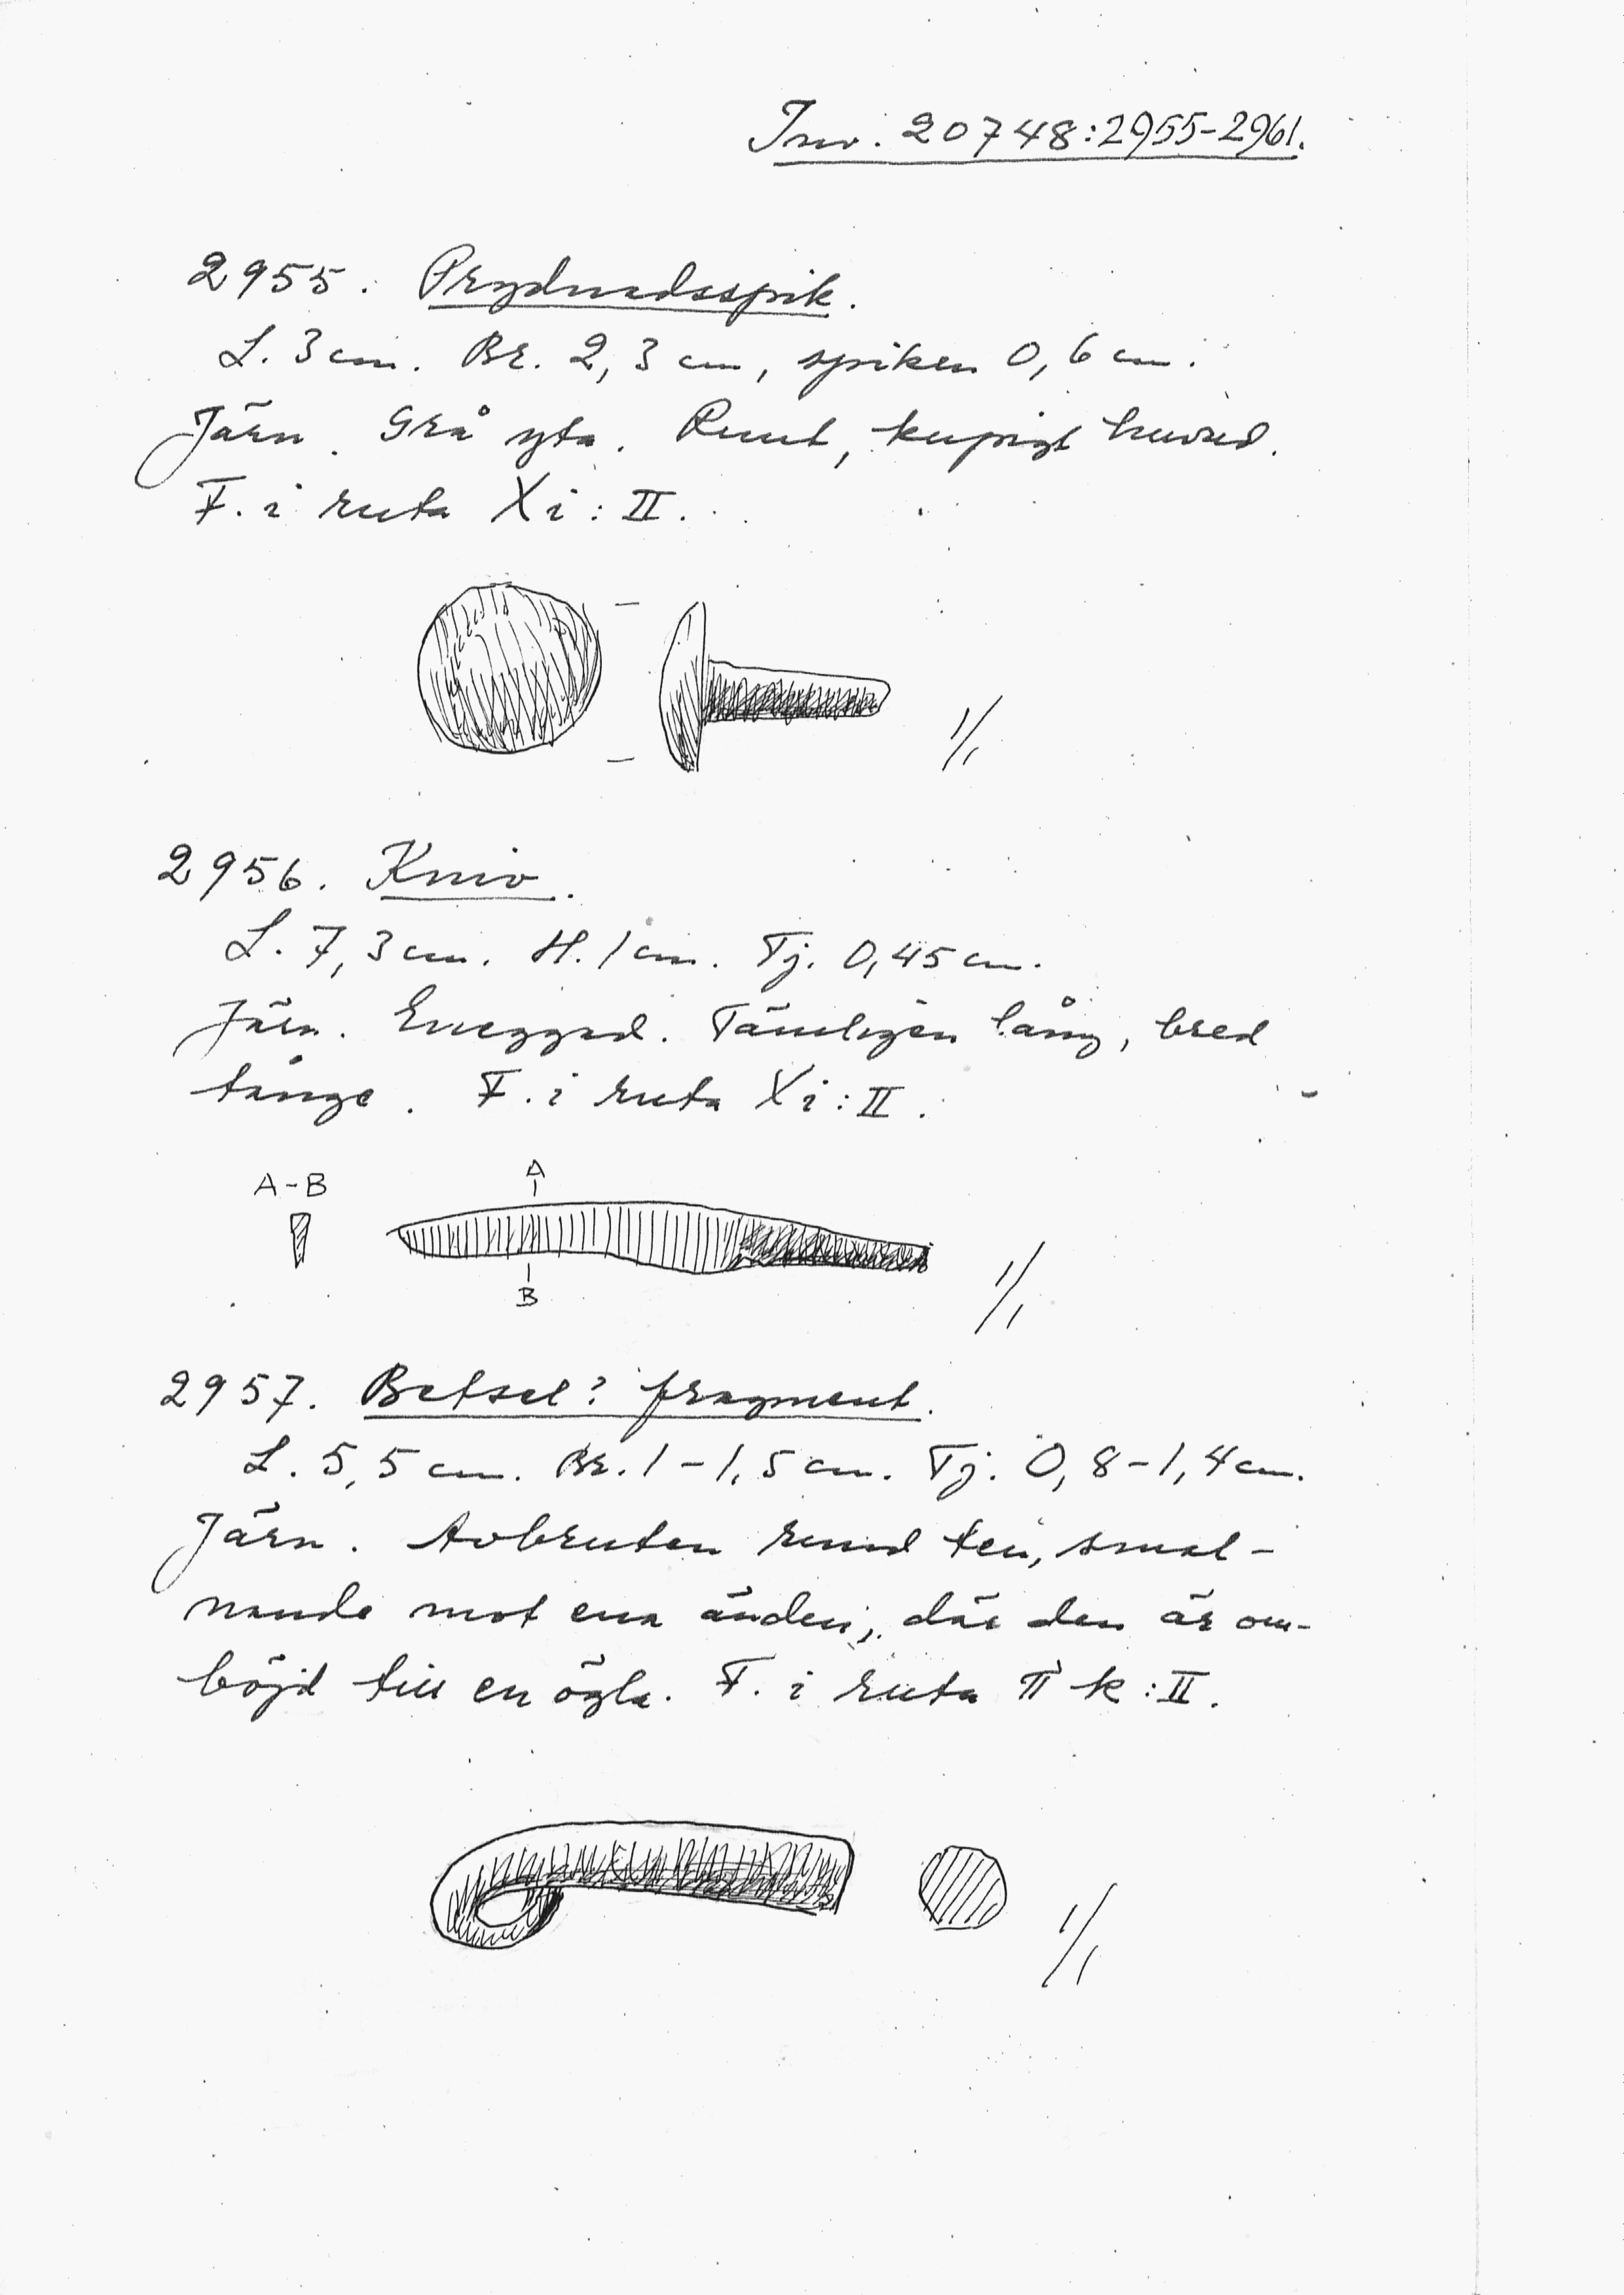 Inv. 20748:2955-2961.
2955. Prydnadsspik.
L. 3 cm. Br. 2,3 cm, spiken 0,6 cm.
Järn. Grå yta. Runt, kupigt huvud.
F. i ruta Xi:II.
1/1
2956. Kniv.
L. 7,3 cm. H. 1 cm. Tj. 0,45 cm.
Järn. Eneggad. Tämligen lång, bred
tånge. F. i ruta Xi:II.
A-B
A
B
1/1
2957. Betsel? fragment.
L. 5,5 cm. Br. 1-1,5 cm. Tj. 0,8-1,4 cm.
Järn. Avbruten rund ten, smal-
nande mot ena änden, där den är om-
böjd till en ögla. F. i ruta π k:II.
1/1